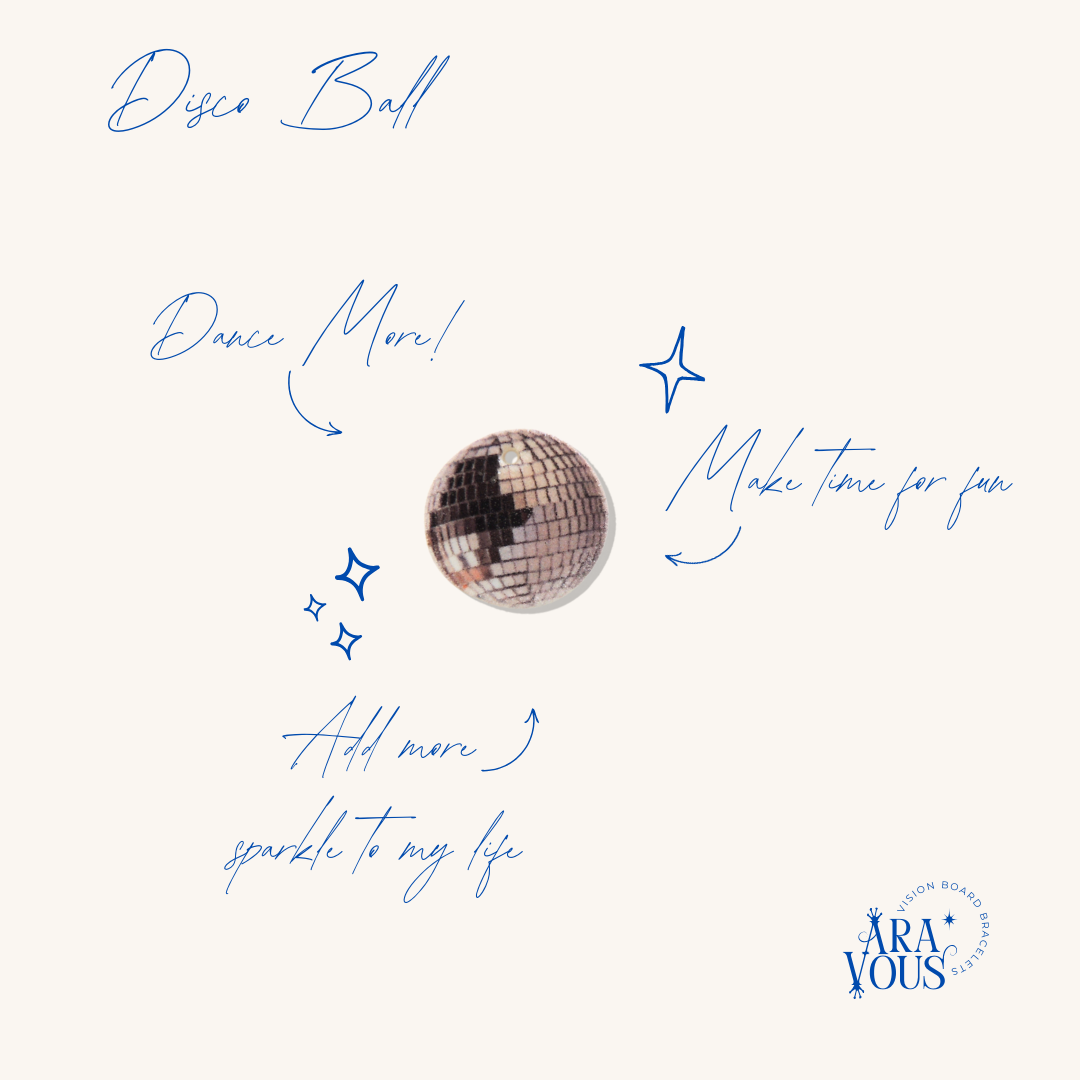 Disco Ball
Dance More!
Make time for fun
Add more
sparkle to my life
VISION BOARD BRACELETS
ARA
VOUS